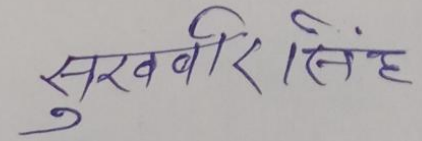 सुखवीर सिंह